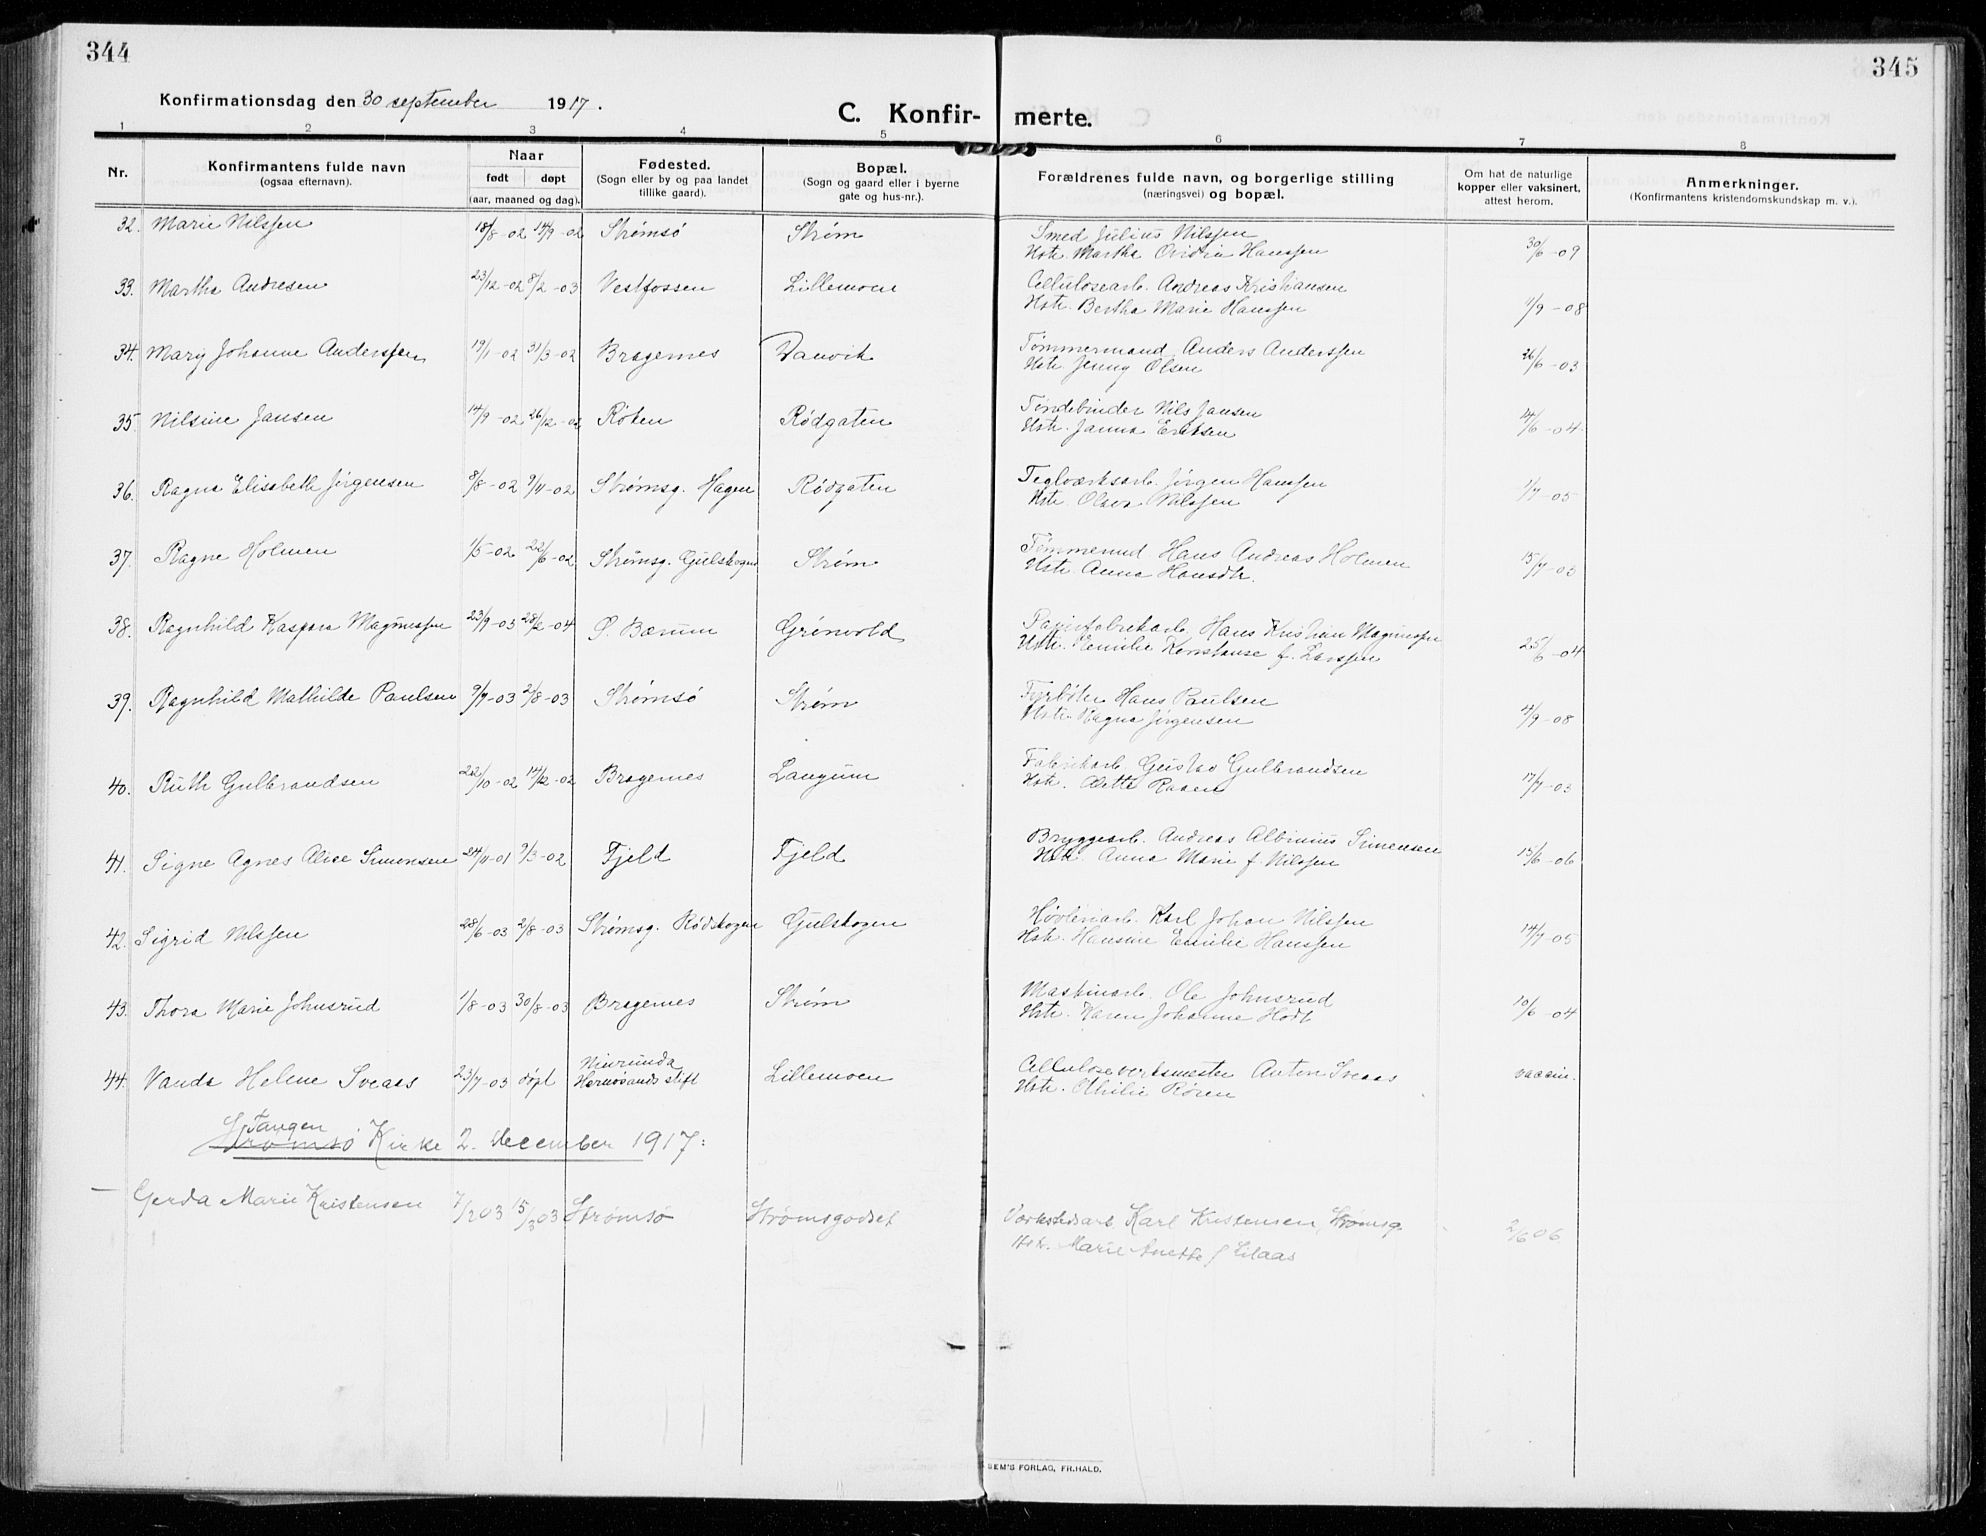 344
345
Konfirmationsdag den 30 september 1917.
C. Konfir-
merte.
1 2 3 4 5 6 7 8
Nr.
Konfirmantens fulde navn
(ogsaa efternavn).
Naar
født døpt
(aar, maaned og dag).
Fødested.
(Sogn eller by og paa landet
tillike gaard).
Bopæl.
(Sogn og gaard eller i byerne
gate og hus-nr.).
Forældrenes fulde navn, og borgerlige stilling
(næringsvei) og bopæl.
Om hat de naturlige
kopper eller vaksinert,
attest herom.
Anmerkninger.
(Konfirmantens kristendomskundskap m. v.).
32. Marie Nilssen 18/8-02 14/9-02 Strømsö Strøm Smed Julius Nilssen 30/6-09
Hstr. Martha Hanssen
33. Martha Andresen 23/12-02 8/2-03 Vestfossen Lillemoen Cellulosearb. Andreas Kristiansen 1/9-08
Hstr. Bertha Marie Hanssen
34. Mary Johanne Anderssen 19/1-02 31/3-02 Bragernes Danvik Tømmermand Anders Anderssen 26/6-03
Hstr. Jenny Olsen
35. Nilsine Jansen 14/9-02 26/12-02 Röken Rödgaten Töndebinder Nils Jansen 14/6-04
Hstr. Janna Eriksen
36. Ragna Elisabeth Jörgensen 8/8-02 9/11-02 Strømsg. Hagen Rödgaten Teglverksarb. Jörgen Hanssen 1/7-05
Hstr. Olava Nilssen
37. Ragne Holmen 1/5-02 22/6-02 Strømsg. Gulskogen Strøm Tømmermd. Hans Andreas Holmen 15/7-03
Hstr. Anna Hansdtr.
38. Ragnhild Kaspara Magnussen 23/9-03 28/2-04 Ø. Bærum Grönvold Papirfabrikarb. Hans Kristian Magnussen 25/6-04
Hstr. Emilie Konstanse f. Larssen
39. Ragnhild Mathilde Paulsen 9/7-03 2/8-03 Strømsö Strøm Fyrböter Hans Paulsen 4/9-08
Hstr. Ragna Jörgensen
40. Ruth Gulbrandsen 22/10-02 14/12-02 Bragernes Langum Fabrikarb. Gustav Gulbrandsen 17/7-03
Hstr. Alette Raaen
41. Signe Agnes Alice Simonsen 24/11-01 9/3-02 Fjeld Fjeld Bryggearb. Andreas Albinius Simensen 15/6-06
Hstr. Anna Marie f. Nilssen
42. Sigrid Nilssen 28/6-03 2/8-03 Strømsg. Rödskogen Gulskogen Høvleriarb. Karl Johan Nilssen 14/9-05
Hstr. Hansine Emilie Hanssen
43. Thora Marie Johnsrud 1/8-03 30/8-03 Bragernes Strøm Maskinarb. Ole Johnsrud 10/6-04
Hstr. Karen Johanne Hodt
44. Vanda Helene Sveaas 23/7-03 döpt Njurunda Lillemoen Celluloseverksmester Anton Sveaas vaccin.
Hernösands stift Hstr. Othilie Rören
Tangen
Strømsö Kirke 2. december 1917:
— Gerda Marie Kristensen 7/2 03 15/3 03 Strømsö Strømsgodset Verkstedsarb Karl Kristensen, Strømsg. 2/6 06
Hstr. Marie Anette f Lilaas
SEM'S FORLAG, FR.HALD.